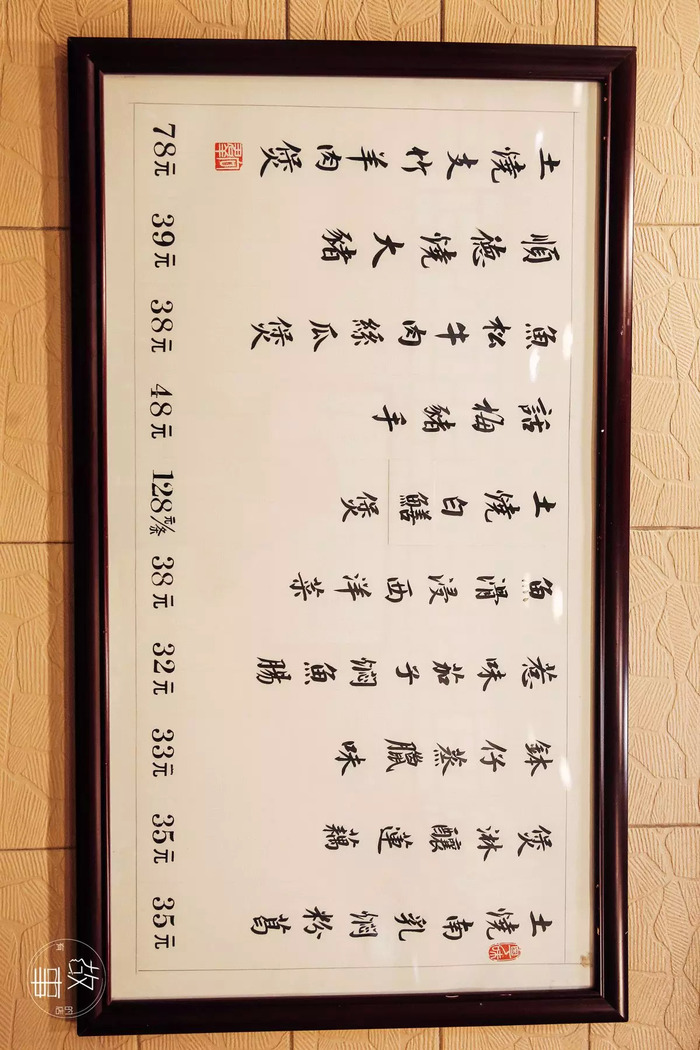 土燒南乳焖粉葛 35元
煲淋釀蓮藕 35元
鉢仔蒸臘味 33元
惹味茄子焖魚腸 32元
魚滑浸西洋菜 38元
土燒白鱔煲 128元/条
話梅豬手 48元
魚松牛肉絲瓜煲 38元
順德燒大豬 39元
土燒支竹羊肉煲 78元
有故事的店